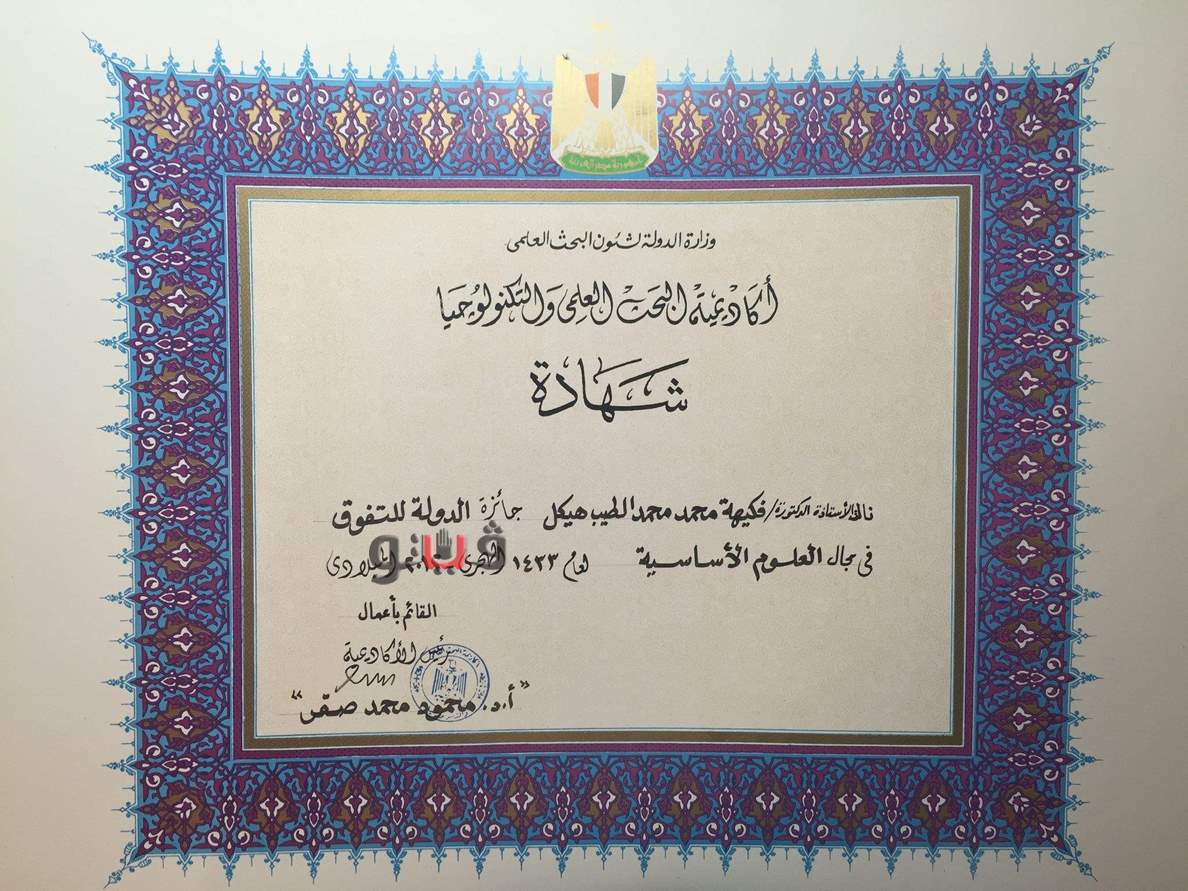 جمهورية مصر العربية
وزارة الدولة لشئون البحث العلمى
أكاديمية البحث العلمى والتكنولوجيا
شهادة
نالت الأستاذة الدكتورة/ فكيهة محمد محمد الطيب هيكل جائزة الدولة للتفوق
فى مجال العلوم الأساسية لعام ١٤٣٣ الهجرى الميلادى
ڤيتو
القائم بأعمال
رئيس الأكاديمية
"أ.د. محمود محمد صقر"